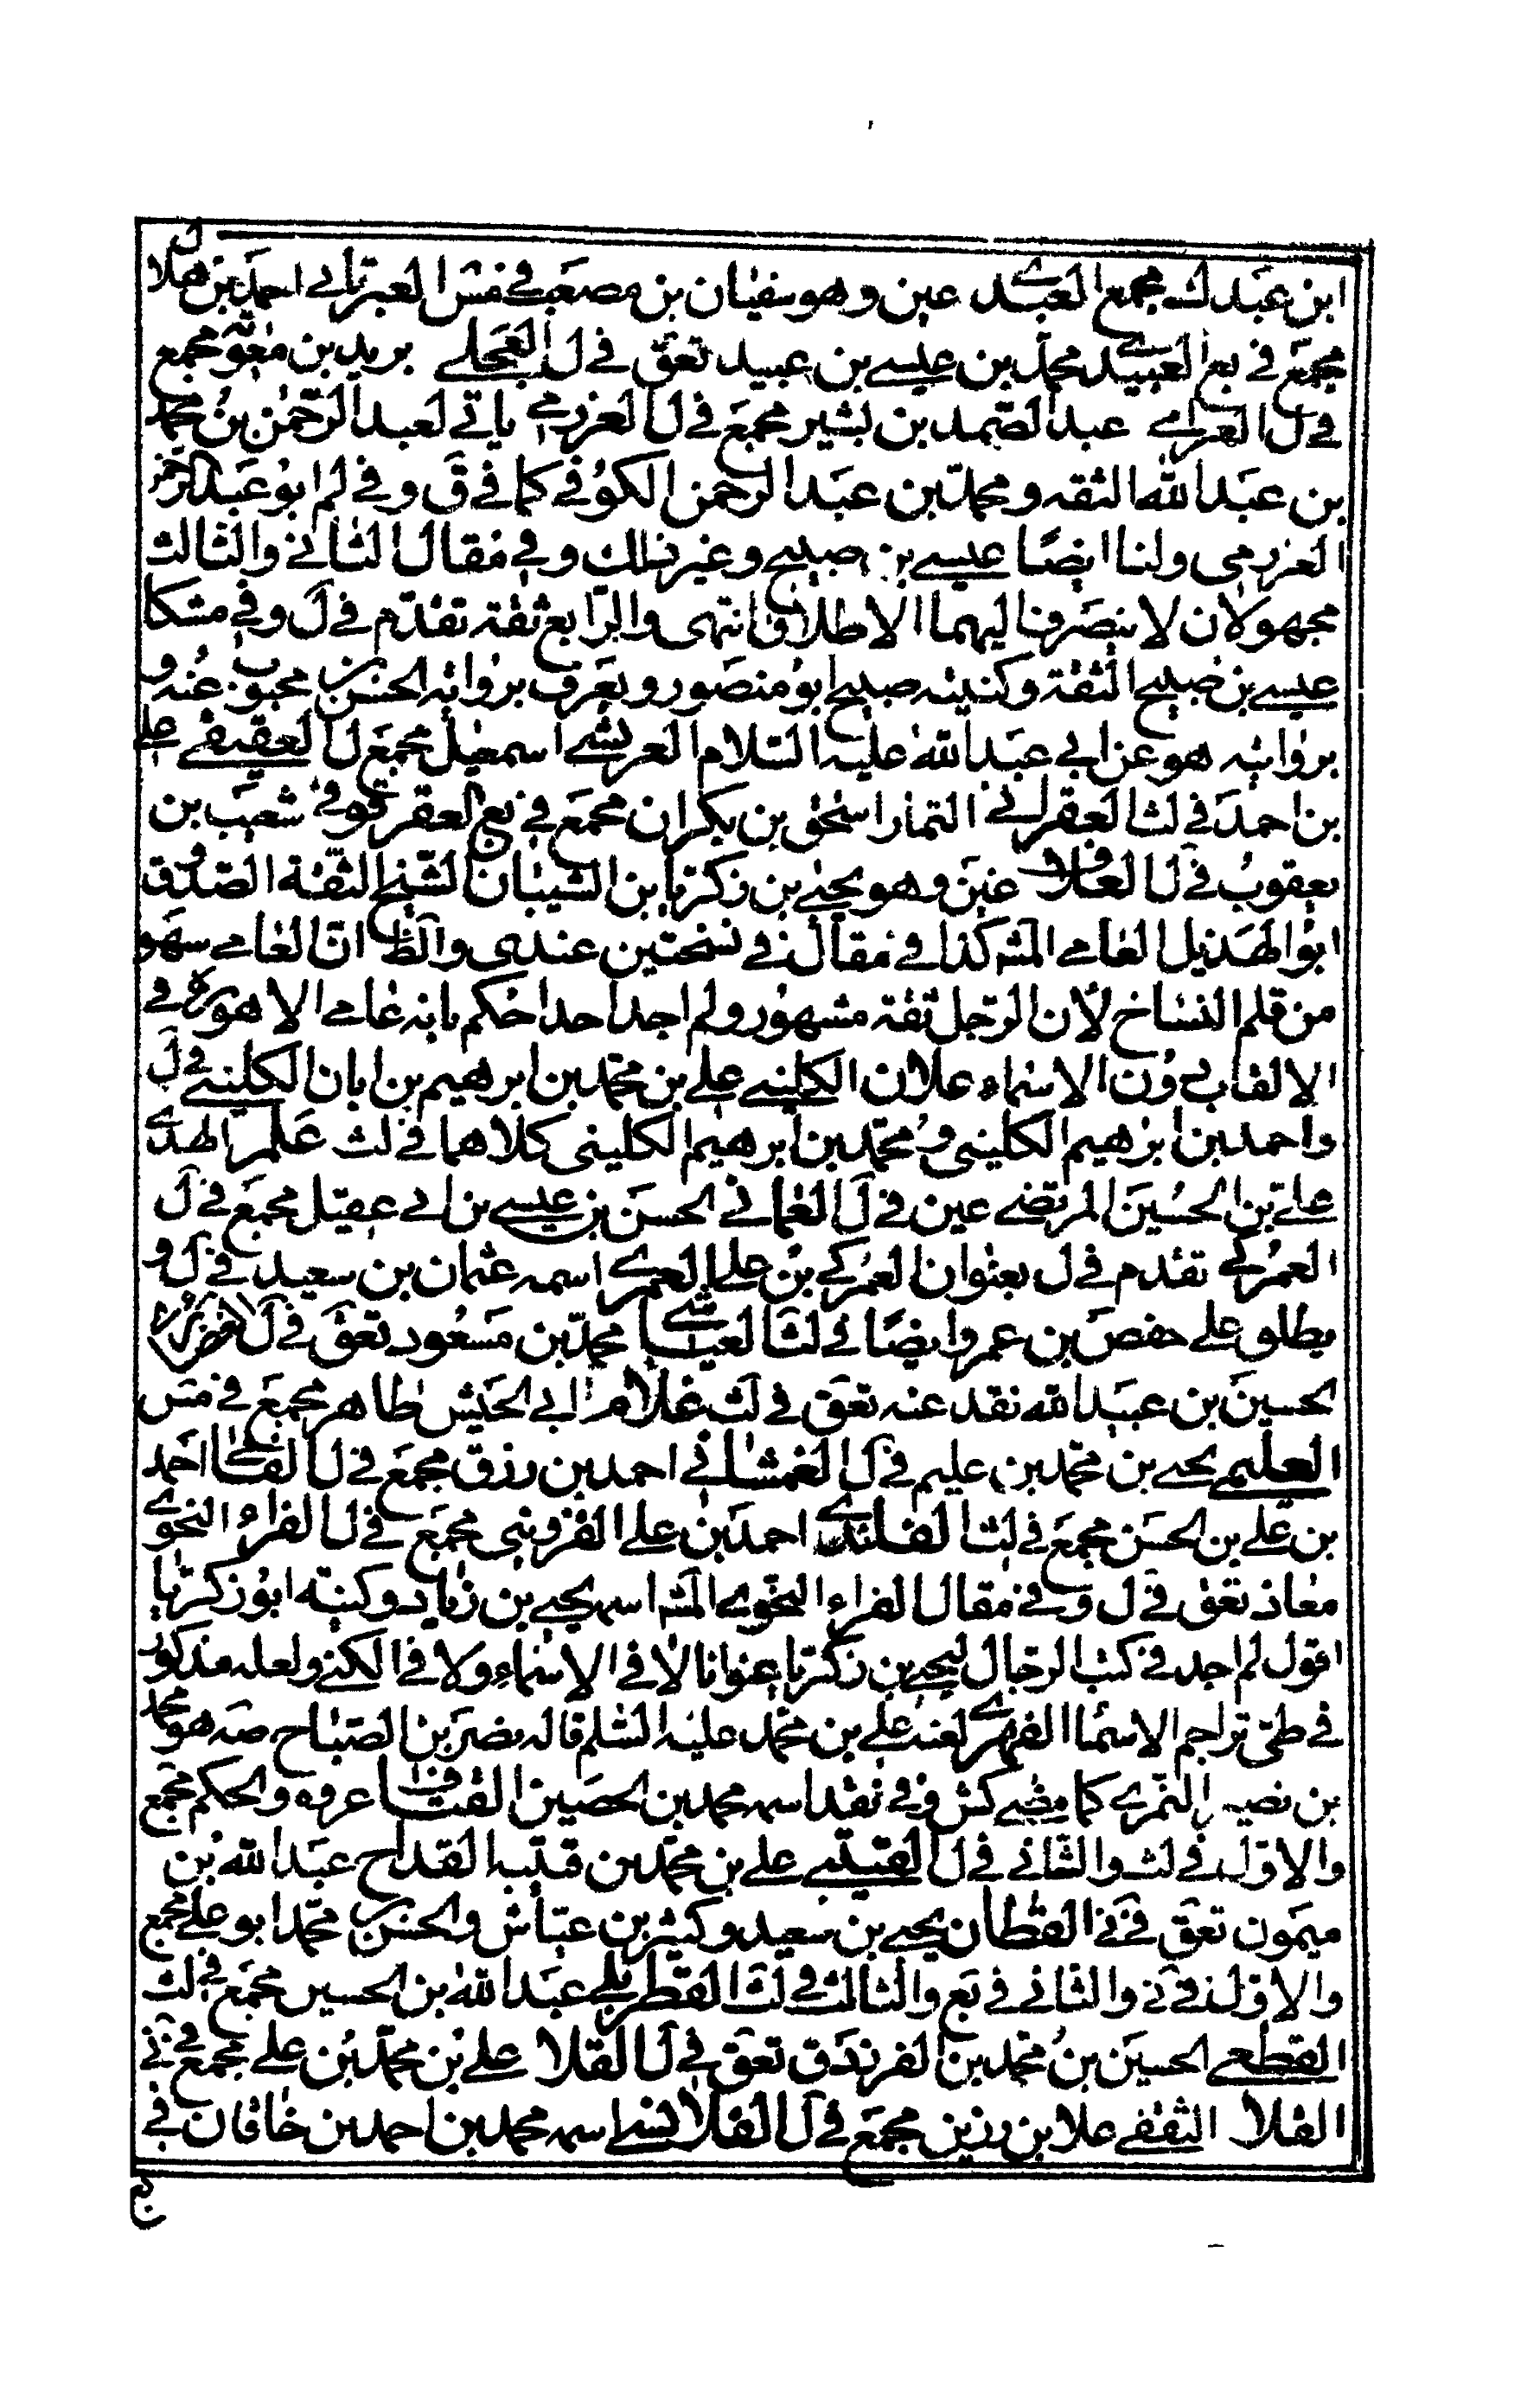 ابن عبد لث مجمع العبدي عين وهو سفيان بن مصعب في مش العبرتائي احمد بن هلال
مجمع في بع العبيدي محمد بن عيسى بن عبيد تعق في ل العجلي بريد بن معوية مجمع
في ل العرامي عبد الصمد بن بشير مجمع في ل العزرمي ياتي لعبد الرحمن بن محمد
بن عبد الله الثقه ومحمد بن عبد الرحمن الكوفي كما في ق وفي لم ابو عبد الرحمن
العزرمي ولنا ايضا عيسى بن صبيح وغير ذلك وفي مقال الثاني والثالث
مجهولان لا ينصرفنا ليهما الاطلاق انتهى والرابع ثقة تقدم في ل وفي مشكا
عيسى بن صبيح الثقة وكنيته صبيح ابو منصور ويعرف بروايه الحسن بن محبوب عنه و
بروايته هو عن ابي عبد الله عليه السلام العريشي اسمعيل مجمع ل العقيقي علي
بن احمد في لث العقراني التمار اسحق بن بكران مجمع في بع العقرقوفي شعيب بن
يعقوب في ل العلاف عين وهو يحيى بن زكريا بن الشيبان الشيخ الثقة الصدوق
ابو الهذيل العامي المش كذا في مقال في نسختين عندي والظ ان العامي سهو
من قلم النساخ لان الرجل ثقة مشهور ولم اجد احدا حكم بانه عامي الا هو ره في
الالقاب دون الاسماء علان الكليني علي بن محمد بن ابرهيم بن ابان الكليني في ل
واحمد بن ابرهيم الكليني ومحمد بن ابرهيم الكليني كلاهما في لث علم الهدى
علي بن الحسين المرتضى عين في ل العماني الحسن بن عيسى بن ابي عقيل مجمع في ل
العمركي تقدم في ل بعنوان العمركي بن علي العمري اسمه عثمان بن سعيد في ل و
يطلق على حفص بن عمرو ايضا في لث العياشي محمد بن مسعود تعق في ل الغضائري
الحسين بن عبيد الله نقد عنه تعق في لث غلام ابي الحبيش طاهر مجمع في مش
العليمي يحيى بن محمد بن عليم في ل الغمشاني احمد بن رزق مجمع في ل الفا احمد
بن علي بن الحسن مجمع في لث الفا احمد بن علي القزويني مجمع في ل الفراء النحوي
معاذ تعق في ل وفي مقال الفراء النحوي المش اسمه يحيى بن زياد وكنيته ابو زكريا
اقول لم اجد في كتب الرجال ليحيى بن زكريا عنوانا لا في الاسماء ولا في الكنى ولعله مذكور
في طي تراجم الاسما الفهري لعنه علي بن محمد عليه السلم قاله نصر بن الصباح صه هو محمد
بن نصير النمري كما مضى كش وفي نقد اسمه محمد بن الحصين القتات عروه والحكم مجمع
والاول في لث والثاني في ل القتيبي علي بن محمد بن قتيبه القداح عبد الله بن
ميمون تعق في ني القطان يحيى بن سعيد وكثير بن عياش والحسن بن محمد ابو علي مجمع
والاول في ني والثاني في بع والثالث في لث القطربلي عبد الله بن الحسين مجمع في لث
القطعي الحسين بن محمد بن الفرزدق تعق في ل القلا علي بن محمد بن علي مجمع في ني
القلا الثقفي علا بن رزين مجمع في ل القلانسي اسمه محمد بن احمد بن خاقان في